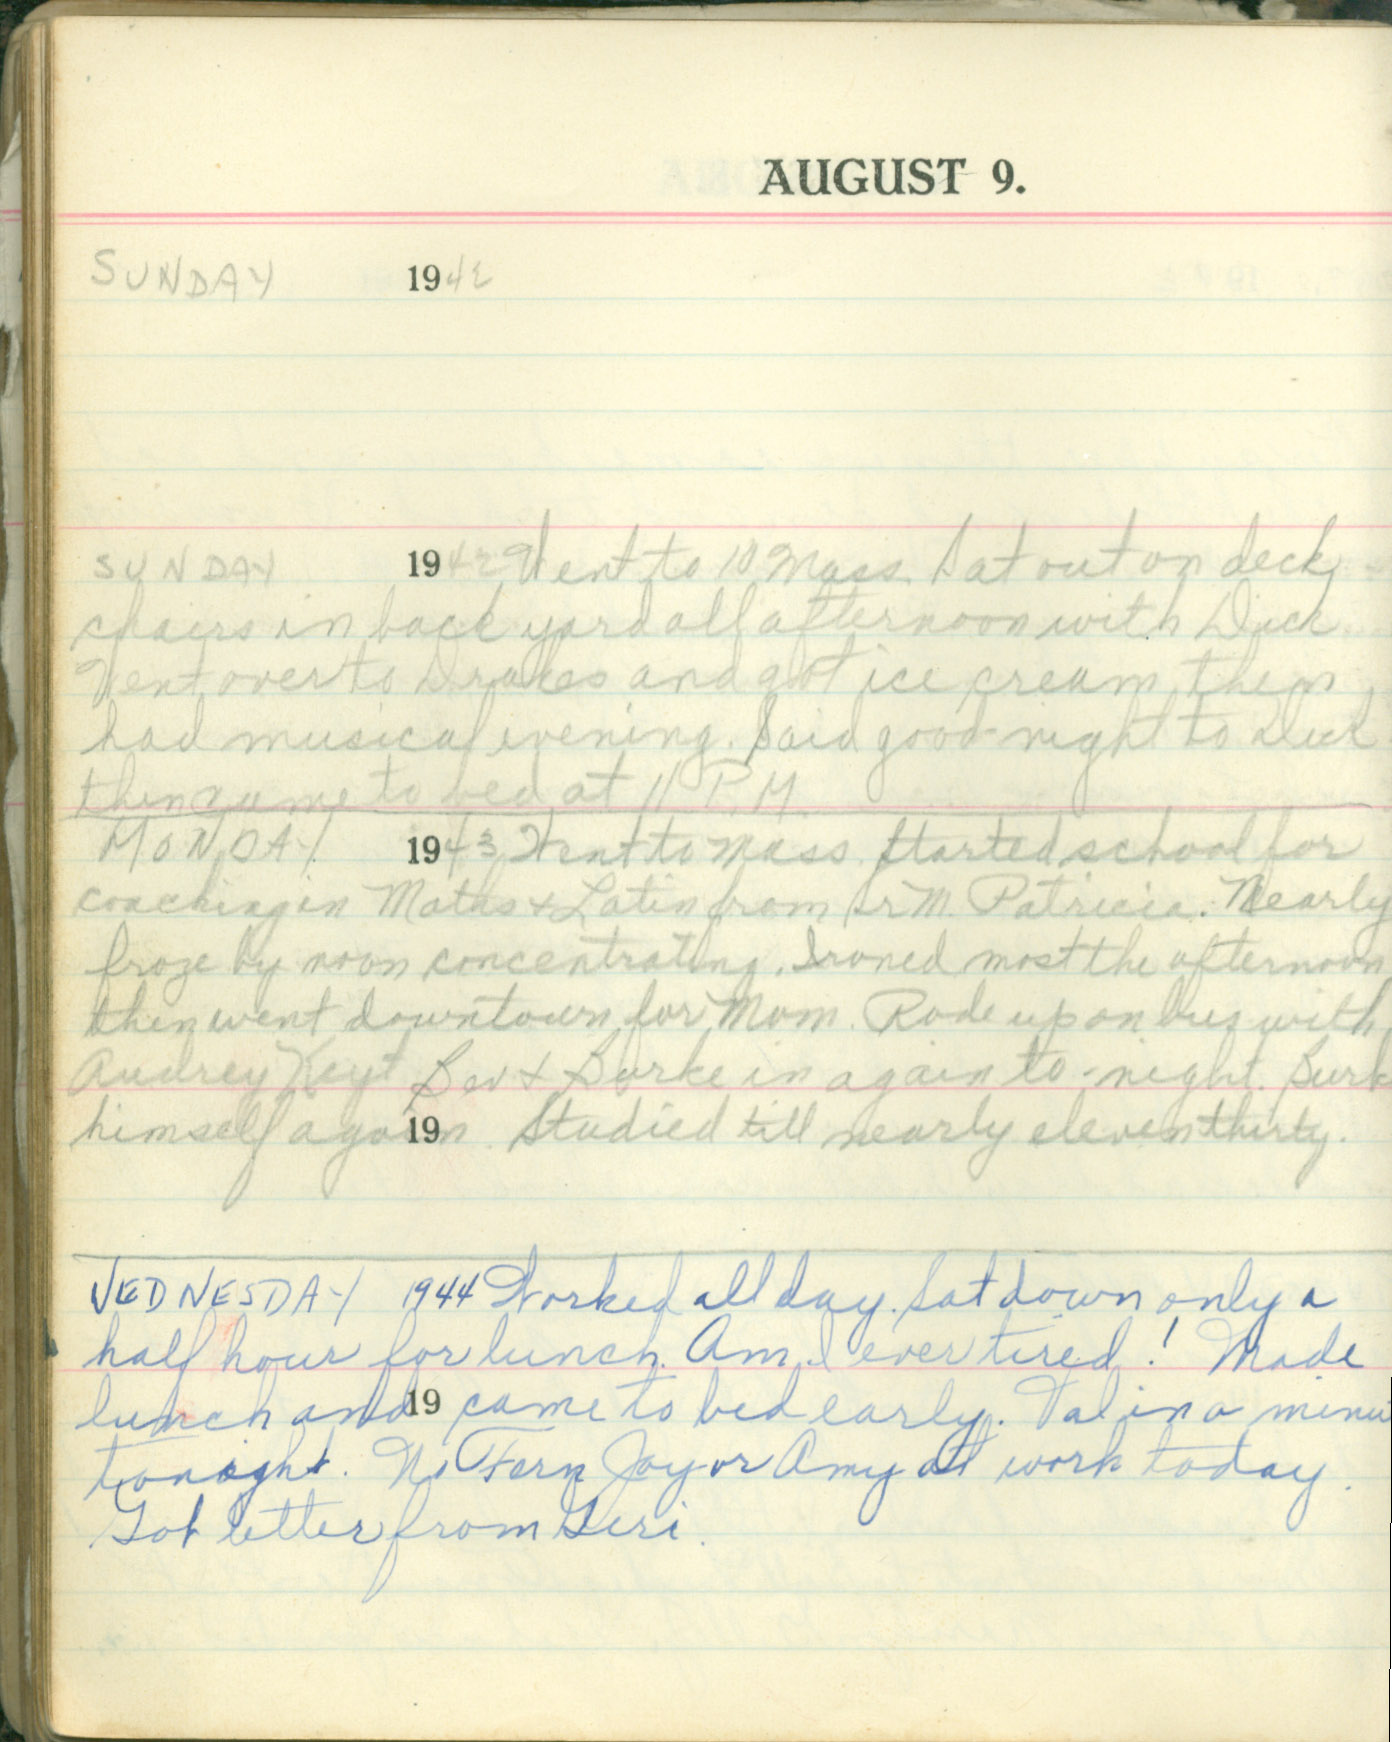 AUGUST 9.
SUNDAY 1942
SUNDAY 1942 Went to 10 Mass. Sat out on deck
chairs in back yard all afternoon with Dick.
Went over to Drakes and got ice cream, then
had musical evening. Said good-night to Dick
then came to bed at 11 P.M.
MONDAY 1943 Went to Mass Started school for
coaching in Maths + Latin from Sr M. Patricia. Nearly
froze by noon concentrating. Ironed most the afternoon
then went downtown for Mom. Rode up on bus with
Audrey Keyt Bev + Burke in again to-night. Burk
himself again. Studied till nearly eleven thirty.
19
WEDNESDAY 1944 Worked all day. Sat down only a
half hour for lunch. Am I ever tired! Made
lunch and came to bed early. Val in a minu
19
tonight. No Fern Joy or Amy at work today.
Got letter from Geri.